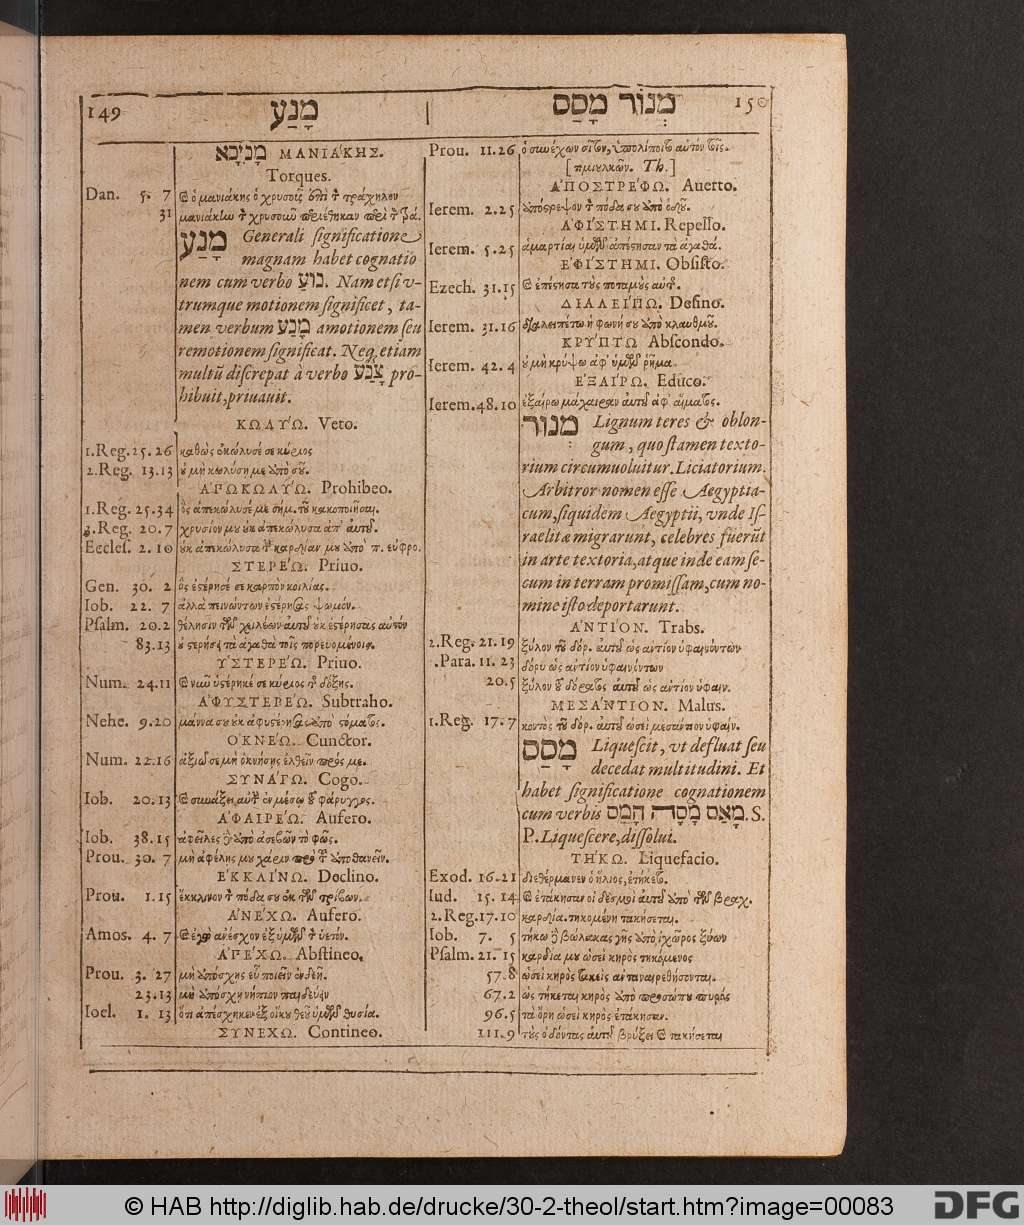 149 מָנַע
מְנוֹר מָסַס 150
מָנִיכָא ΜΑΝΙΆΚΗΣ.
Torques.
Dan. 5. 7 ὁ μανιάκης ὁ χρυσοῦς
31
מָנַע Generali significatione
magnam habet cognatio
nem cum verbo נוּעַ. Nam etsi v-
trumque motionem significet, ta-
men verbum מָנַע amotionem seu
remotionem significat. Neq, etiam
multū discrepat à verbo צָנַע pro-
hibuit, priuauit.
ΚΩΛΥΏ. Veto.
1.Reg. 25.26 καθὼς ἐκώλυσέ σε κύριος
2.Reg. 13.13 οὐ μὴ κωλύσῃ με
ἈΡΩΚΩΛΥΏ. Prohibeo.
1.Reg. 25.34 ὃς ἀπεκώλυσέ με σήμ. τοῦ κακοποιῆσαι.
3.Reg. 20.7 χρυσίον μου οὐκ ἀπεκώλυσα ἀπ' αὐτοῦ.
Eccles. 2.10 οὐκ ἀπεκώλυσα
ΣΤΕΡΕΏ. Priuo.
Gen. 30. 2 ὃς ἐστέρησέ σε καρπὸν κοιλίας.
Iob. 22. 7 ἀλλὰ πεινώντων ἐστέρησας ψωμόν.
Psalm. 20.2 οὐκ ἐστέρησας αὐτόν
83.13 οὐ στερήσει τὰ ἀγαθὰ τοῖς πορευομένοις.
ὙΣΤΕΡΕΏ. Priuo.
Num. 24.11 ὑστέρησέ σε κύριος τῆς δόξης.
ἈΦΥΣΤΕΡΕΏ. Subtraho.
Nehe. 9.20 μάννα σου οὐκ ἀφυστέρησας
ὈΚΝΕΏ. Cunctor.
Num. 22.16 ἀξιῶ σε μὴ ὀκνήσῃς ἐλθεῖν πρός με.
ΣΥΝΆΓΩ. Cogo.
Iob. 20.13
ἈΦΑΙΡΕΏ. Aufero.
Iob. 38.15 ἀσεβῶν τὸ φῶς.
Prou. 30. 7 μὴ ἀφέλῃς μου χάριν
ἘΚΚΛΊΝΩ. Declino.
Prou. 1.15 ἔκκλινον
ἈΝΈΧΩ. Aufero.
Amos. 4. 7
ἈΡΈΧΩ. Abstineo.
Prou. 3. 27 μὴ ἀπόσχῃς εὖ ποιεῖν ἐνδεῆ.
23.13 μὴ ἀπόσχῃ νήπιον παιδεύειν
Ioel. 1. 13 ὅτι ἀπέσχηκεν ἐξ οἴκου θεοῦ ὑμῶν θυσία.
ΣΥΝΕΧΩ. Contineo.
Prou. 11.26 ὁ συνέχων σῖτον,
Th.]
ἈΠΟΣΤΡΕΦΩ. Auerto.
Ierem. 2.25
ἈΦΊΣΤΗΜΙ. Repello.
Ierem. 5.25 ἁμαρτίαι ὑμῶν ἀπέστησαν τὰ ἀγαθά.
ἘΦΊΣΤΗΜΙ. Obsisto.
Ezech. 31.15 ἐπέστησα τοὺς ποταμοὺς αὐτῆς.
ΔΙΑΛΕΊΠΩ. Desino.
Ierem. 31.16 διαλειπέτω ἡ φωνή σου ἀπὸ κλαυθμοῦ.
ΚΡΎΠΤΩ Abscondo.
Ierem. 42.4 οὐ μὴ κρύψω ἀφ' ὑμῶν ῥῆμα.
ἘΞΑΊΡΩ. Educo.
Ierem. 48.10 ἐξαίρων μάχαιραν αὐτοῦ ἀφ' αἵματος.
מְנוֹר Lignum teres & oblon-
gum, quo stamen texto-
rium circumuoluitur. Liciatorium.
Arbitror nomen esse Aegyptia-
cum, siquidem Aegyptii, vnde Is-
raelitæ migrarunt, celebres fuerūt
in arte textoria, atque inde eam se-
cum in terram promissam, cum no-
mine isto deportarunt.
ἈΝΤΙΟΝ. Trabs.
2.Reg. 21.19 ξύλον τοῦ δόρ. αὐτοῦ ὡς ἀντίον ὑφαινόντων
.Para. 11. 23 δόρυ ὡς ἀντίον ὑφαινόντων
20.5 ξύλον τοῦ δόρατος αὐτοῦ ὡς ἀντίον ὑφαιν.
ΜΕΣΆΝΤΙΟΝ. Malus.
1.Reg. 17.7 κοντὸς τοῦ δόρ. αὐτοῦ ὡσεὶ μεσάντιον ὑφαιν.
מָסַס Liquescit, vt defluat seu
decedat multitudini. Et
habet significatione cognationem
cum verbis מָאַס מָסָה חָמַס. S.
P. Liquescere, dissolui.
ΤΗΚΩ. Liquefacio.
Exod. 16.21 διεθέρμαινεν ὁ ἥλιος, ἐτήκετο.
Iud. 15. 14 ἐτάκησαν οἱ δεσμοὶ αὐτοῦ ἀπὸ τῶν βραχ.
2.Reg. 17.10 καρδία. τηκομένη τακήσεται.
Iob. 7. 5 τήκω βώλακας γῆς ἀπὸ ἰχῶρος ξύων
Psalm. 21. 15 καρδία μου ὡσεὶ κηρὸς τηκόμενος
57.8 ὡσεὶ κηρὸς τακεὶς ἀνταναιρεθήσονται.
67.2 ὡς τήκεται κηρὸς ἀπὸ προσώπου πυρός
96.5 τὰ ὄρη ὡσεὶ κηρὸς ἐτάκησαν.
111.9 τοὺς ὀδόντας αὐτοῦ βρύξει τακήσεται
© HAB http://diglib.hab.de/drucke/30-2-theol/start.htm?image=00083
DFG